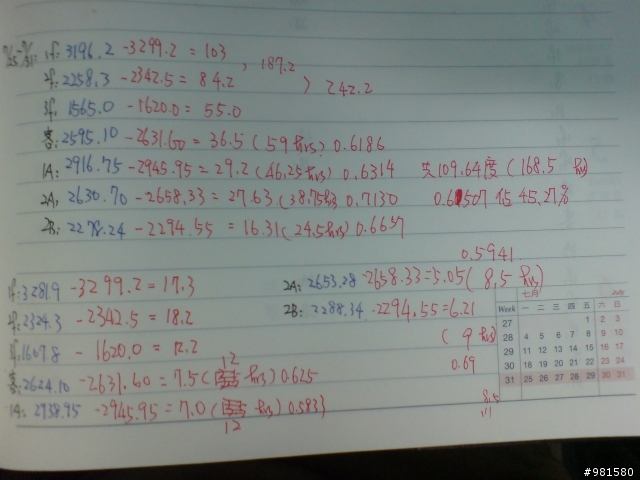 1f: 3196.2 -3299.2 = 103
, 187.2
2f: 2258.3 -2342.5 = 84.2
> 242.2
3f: 1565.0 -1620.0 = 55.0
客: 2595.10 -2631.60 = 36.5 (59 hrs) 0.6186
1A: 2916.75 -2945.95 = 29.2 (46.25 hrs) 0.6314 共109.64度 (168.5 hr)
2A: 2630.70 -2658.33 = 27.63 (38.75 hrs) 0.7130 0.6507 佔 45.27%
2B: 2278.24 -2294.55 = 16.31 (24.5 hrs) 0.6657
0.5941
1f: 3281.9 -3299.2 = 17.3 2A: 2653.28 -2658.33 = 5.05 (8.5 hrs)
2f: 2324.3 -2342.5 = 18.2 2B: 2288.34 -2294.55 = 6.21
3f: 1607.8 -1620.0 = 12.2 (9 hrs)
客: 2624.10 -2631.60 = 7.5 (12 hrs) 0.625 0.69
1A: 2938.95 -2945.95 = 7.0 (12 hrs) 0.5833
8.5
七月 July
Week 一 二 三 四 五 六 日
27 1 2 3
28 4 5 6 7 8 9 10
29 11 12 13 14 15 16 17
30 18 19 20 21 22 23 24
31 25 26 27 28 29 30 31
#981580